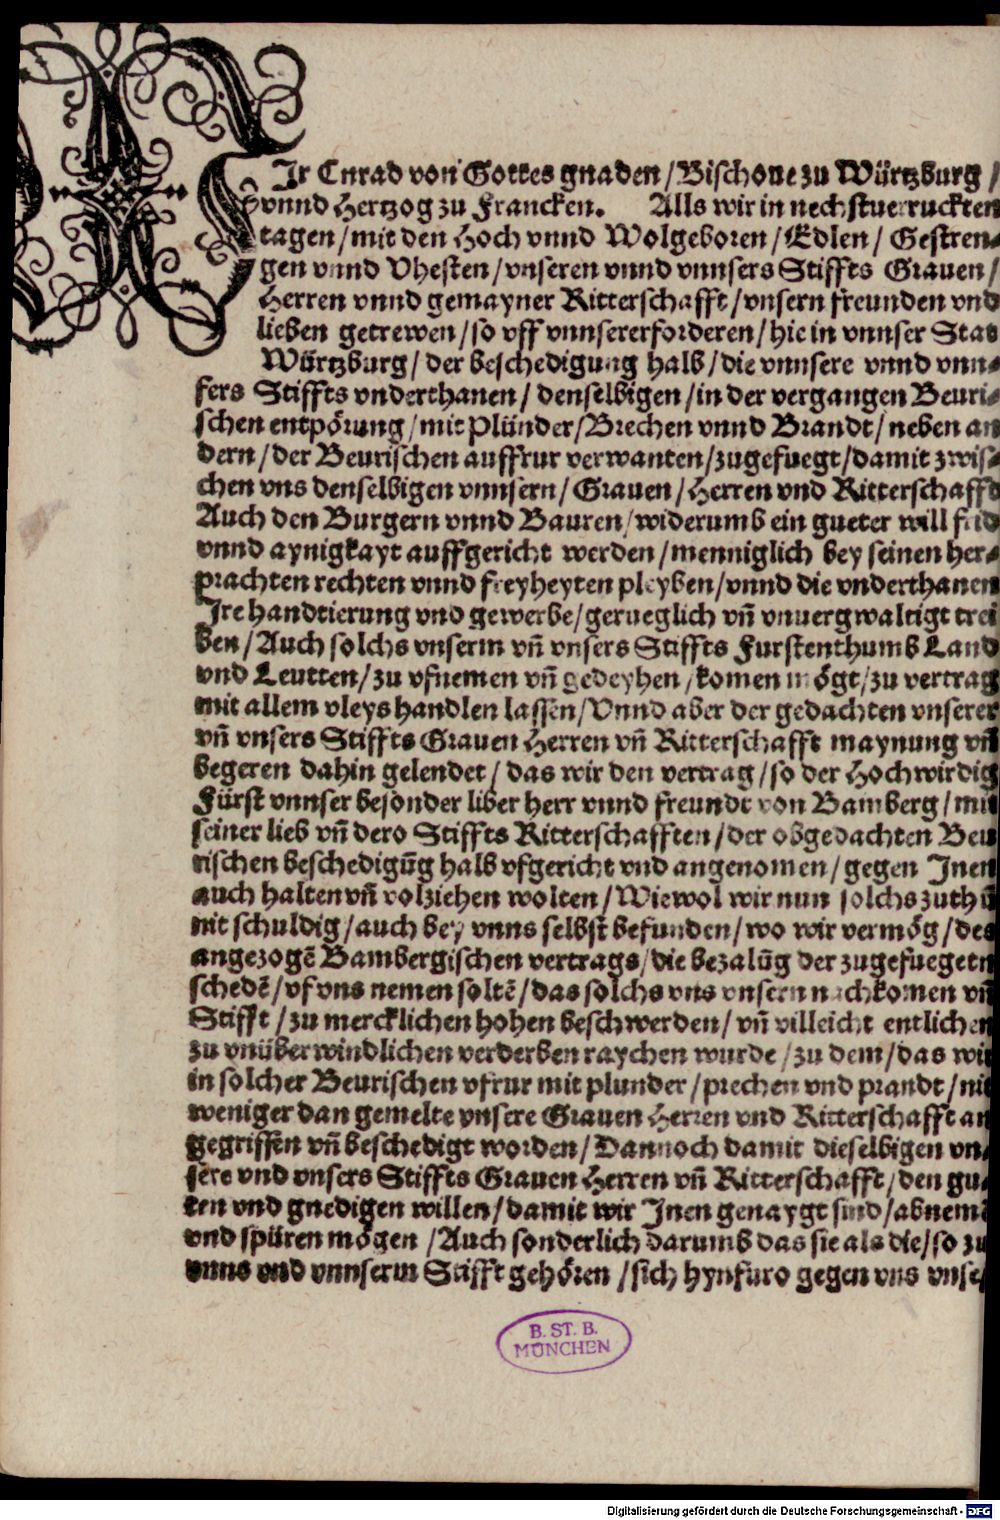 WIr Cnrad von Gottes gnaden / Bischoue zu Würtzburg /
vnnd Hertzog zu Francken. Alls wir in nechstuerruckten
tagen / mit den Hoch vnnd Wolgeboren / Edlen / Gestren-
gen vnnd Vhesten / vnseren vnnd vnnsers Stiffts Grauen /
Herren vnnd gemayner Ritterschafft / vnsern freunden vnd
lieben getrewen / so vff vnnsererforderen / hie in vnnser Stat
Würtzburg / der beschedigung halb / die vnnsere vnnd vnn-
sers Stiffts vnderthanen / denselbigen / in der vergangen Beuri-
schen entpörung / mit Plünder / Brechen vnnd Brandt / neben an
dern / der Beurischen auffrur verwanten / zugefuegt / damit zwis-
chen vns denselbigen vnnsern / Grauen / Herren vnd Ritterschafft
Auch den Burgern vnnd Bauren / widerumb ein gueter will frid
vnnd aynigkayt auffgericht werden / menniglich bey seinen her-
prachten rechten vnnd freyheyten pleyben / vnnd die vnderthanen
Jre handtierung vnd gewerbe / gerueglich vn̄ vnuergwaltigt trei
ben / Auch solchs vnserm vn̄ vnsers Stiffts Furstenthumb Land
vnd Leutten / zu vfnemen vn̄ gedeyhen / komen mögt / zu vertrag
mit allem vleys handlen lassen / Vnnd aber der gedachten vnserer
vn̄ vnsers Stiffts Grauen Herren vn̄ Ritterschafft maynung vn̄
begeren dahin gelendet / das wir den vertrag / so der Hochwirdig
Fürst vnnser besonder liber herr vnnd freundt von Bamberg / mit
seiner lieb vn̄ dero Stiffts Ritterschafften / der obgedachten Beu
rischen beschedigūg halb vfgericht vnd angenomen / gegen Jnen
auch halten vn̄ volziehen wolten / Wiewol wir nun solchs zuthū
nit schuldig / auch bey vnns selbst befunden / wo wir vermög / des
angezogē Bambergischen vertrags / die bezalūg der zugefuegetn
schedē / vf vns nemen soltē / das solchs vns vnsern nachkomen vn̄
Stifft / zu mercklichen hohen beschwerden / vn̄ villeicht entlichen
zu vnüberwindlichen verderben raychen wurde / zu dem / das wir
in solcher Beurischen vfrur mit plunder / prechen vnd prandt / nit
weniger dan gemelte vnsere Grauen Herren vnd Ritterschafft an
gegriffen vn̄ beschedigt worden / Dannoch damit dieselbigen vn-
sere vnd vnsers Stiffts Grauen Herren vn̄ Ritterschafft / den gu-
ten vnd gnedigen willen / damit wir Jnen genaygt sind / abnemē
vnd spüren mögen / Auch sonderlich darumb das sie als die / so zu
vnns vnd vnnserm Stifft gehören / sich hynfuro gegen vns vnse-
B. ST. B.
MÜNCHEN
Digitalisierung gefördert durch die Deutsche Forschungsgemeinschaft - DFG